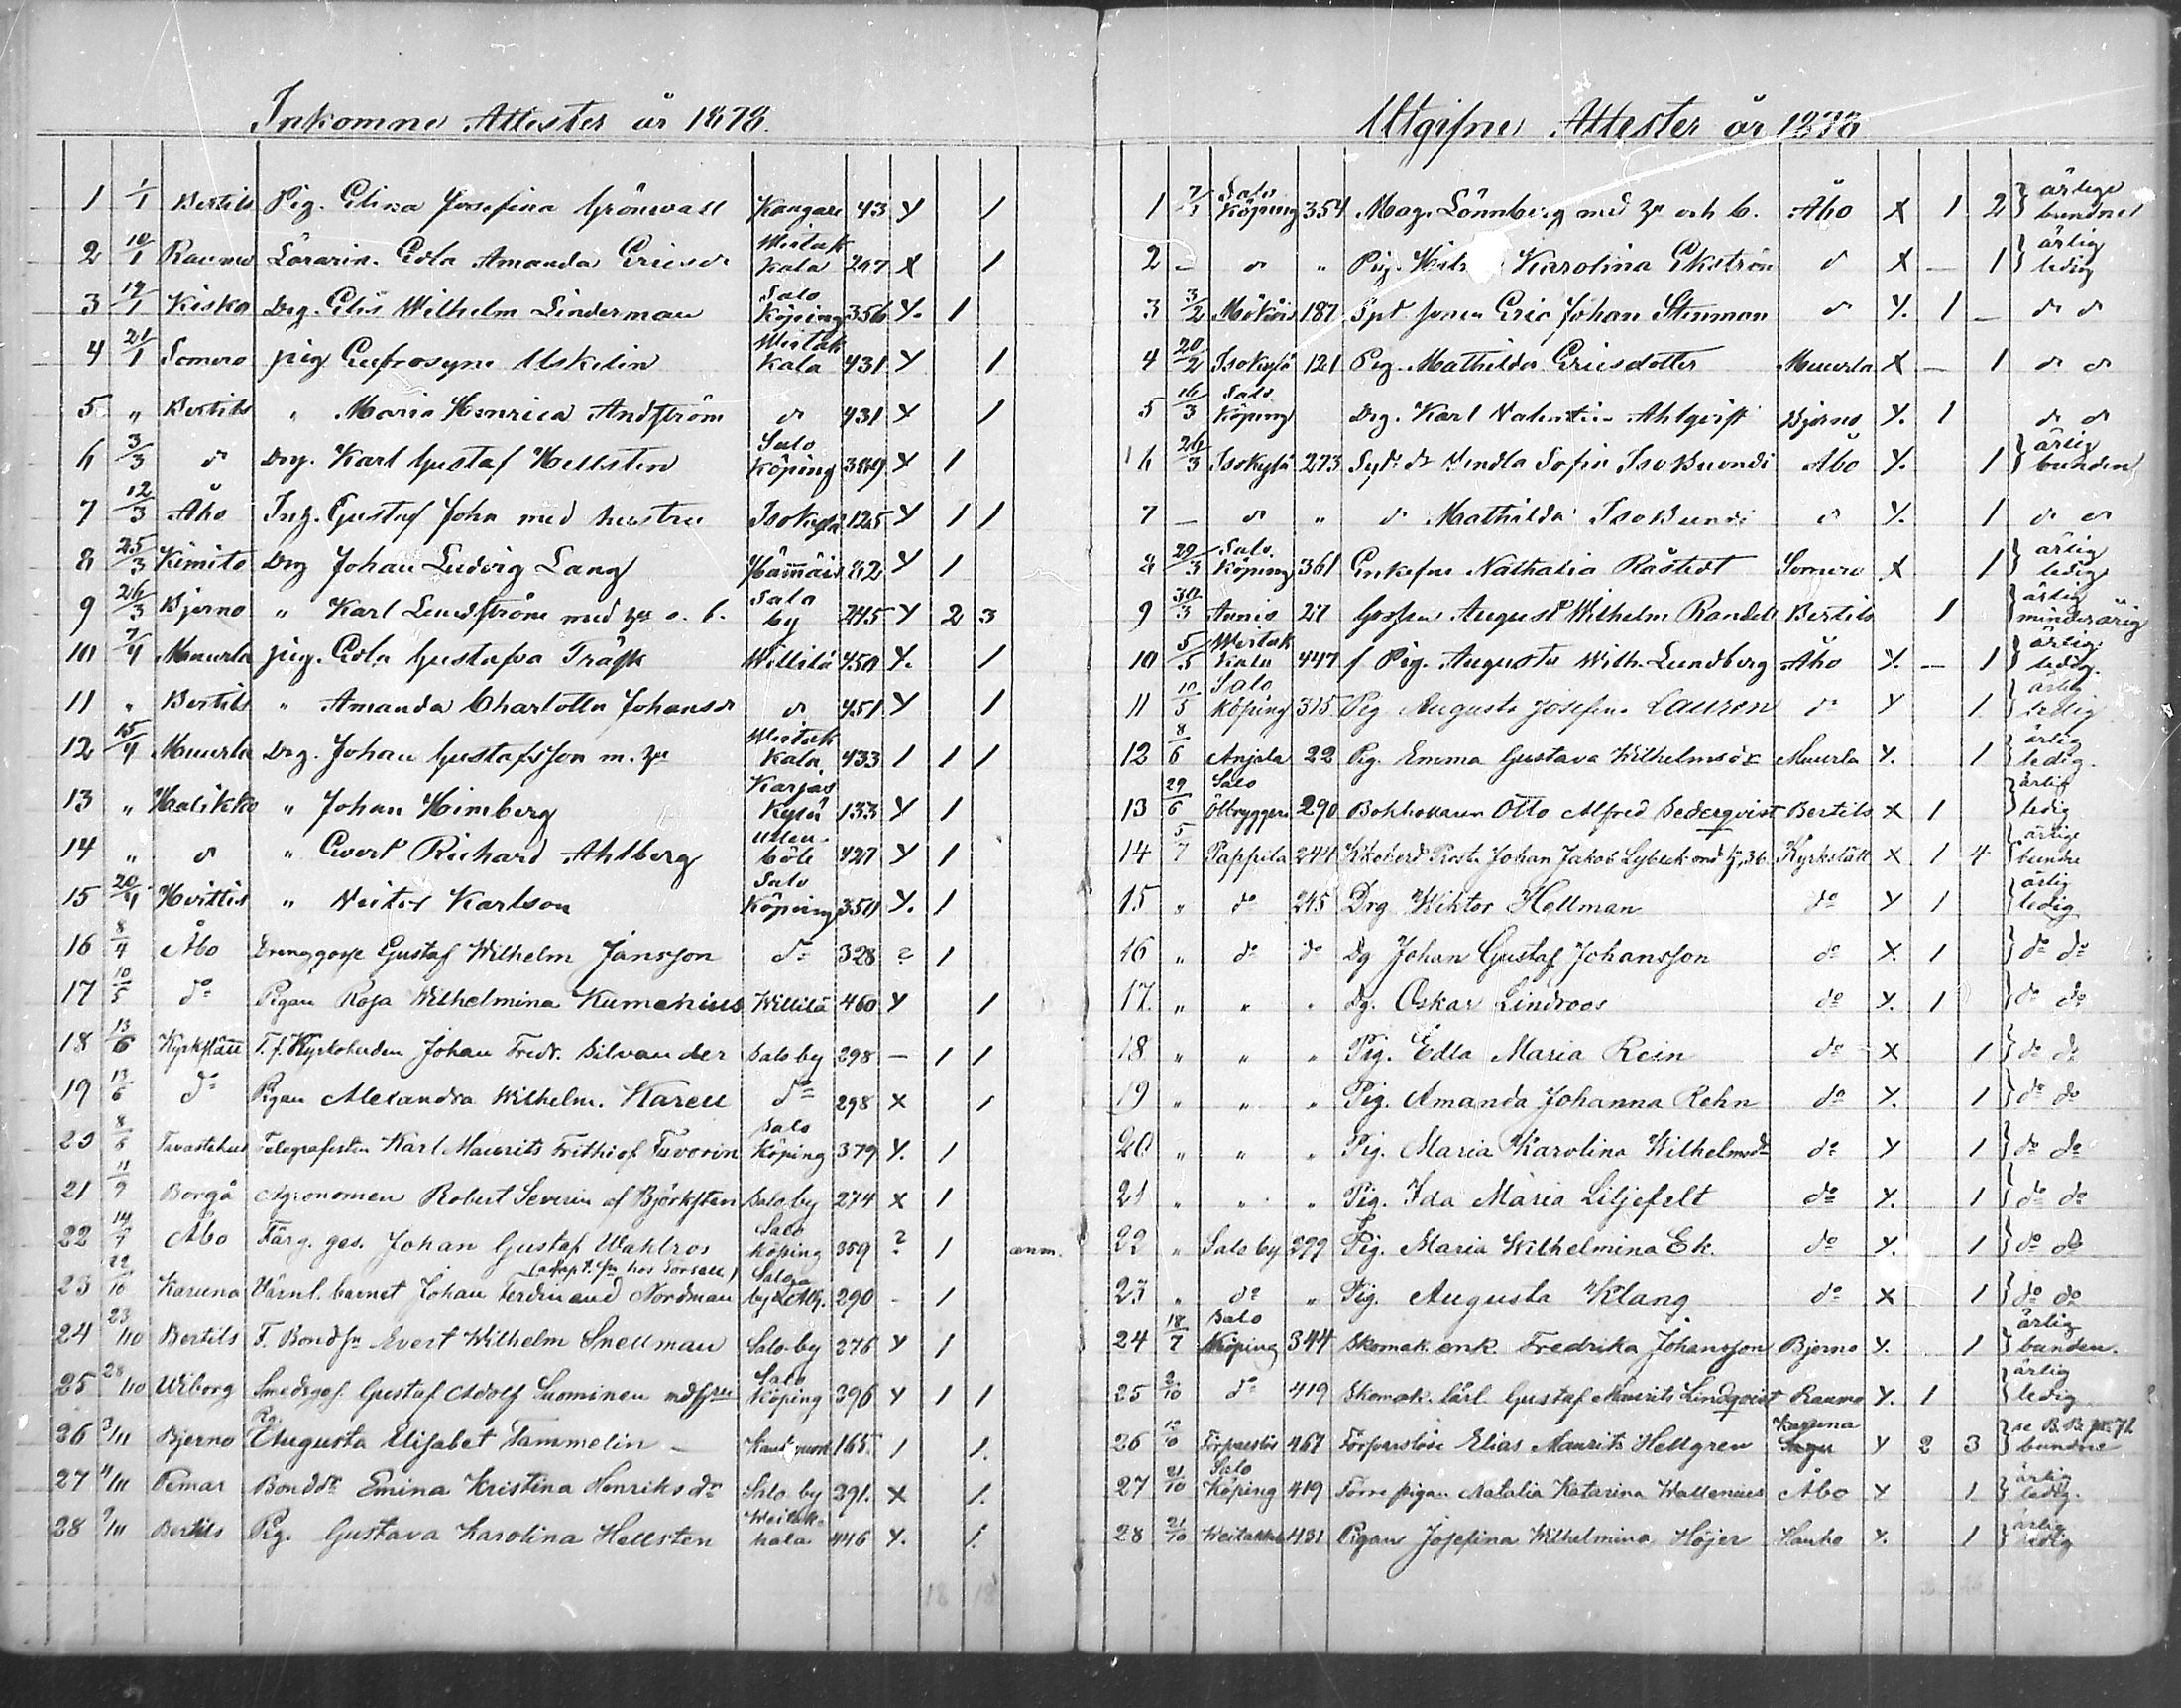 Inkomne Attester år 1878.
1 1/1 Bertils Pig. Elina Josefina Grönvall Kangare 43 Y 1
2 10/1 Raumo Lärarin. Edla Amanda Ericsdr Wistakkala 247 X 1
3 19/1 Kisko Drg. Elis Wilhelm Linderman Salo Köping 356 Y. 1
4 21/1 Somero pig Eufrosyne Uskelin Wistakkala 431 Y 1
5 " Bertils " Maria Henrica Andström do 431 Y 1
6 3/3 do Drg. Karl Gustaf Hellsten Salo Köping 389 Y 1
7 12/3 Åbo Inh. Gustaf John med hustru Isokylä 125 Y 1 1
8 25/3 Kimito Drg Johan Ludvig Lang 82 Y 1
9 26/3 Bjerno " Karl Lundström med hu o. b. Salo by 245 Y 2 3
10 7/4 Muurla pig. Edla Gustafva Träsk Willilä 450 Y. 1
11 " Bertils " Amanda Charlotta Johansdr do 451 Y 1
12 15/4 Muurla Drg. Johan Gustafsson m. hu Wistakkala 433 1 1 1
13 " Halikko " Johan Himberg Karjaskylä 133 Y 1
14 " do " Evert Richard Ahlberg böle 427 Y 1
15 20/4 Hvittis " Karlson Salo Köping 350 Y. 1
16 8/4 Åbo Drenggosse Gustaf Wilhelm Jansson do 328 ? 1
17 10/5 do Pigan Rosa Wilhelmina Kumenius Willilä 460 Y 1
18 13/6 Kyrkslätt T.f. Kyrkoherden Johan Fredr. Silvander Salo by 298 - 1 1
19 13/6 do Pigan Alexandra Wilhelm. Karell do 298 X 1
20 8/6 Tavastehus Telegrafisten Karl Maurits Frithiof Favorin Salo Köping 379 Y. 1
21 11/9 Borgå Agronomen Robert Severin af Björksten Salo by 274 X 1
22 14/7 Åbo Färg. ges. Johan Gustaf Wahlros Salo Köping 359 ? 1 anm.
(adopt. hos Forsell)
23 22/10 Karuna Värnl. barnet Johan Ferdinand Nordman Salo by 290 - 1
24 23/10 Bertils F. Bondsn Evert Wilhelm Snellman Salo by 276 Y 1
25 28/10 Wiborg Smedsges. Gustaf Adolf Suominen md hru Salo Köping 396 Y 1 1
26 3/11 Bjerno Pg. Augusta Elisabet Tammelin - 165. 1 1.
27 11/11 Pemar Bonddr Emina Kristina Henriksdr Salo by 391. X 1.
28 9/11 Bertils Pig. Gustava Karolina Hellsten Weitakkala 446 Y. 1.
18 18
Utgifne Attester år 1878
1 7/1 Salo Köping 354 Mag. Lönnberg med hu och b. Åbo X 1 2 } ärlige bundne
2 - do " Pig. Karolina Ekström do X - 1 } ärlig ledig
3 3/2 187 Spt Eric Johan Stenman do Y. 1 - do do
4 20/2 Isokylä 121 Pig. Mathilda Ericsdotter Muurla X - 1 do do
5 16/3 Salo Köping Drg. Karl Valentin Ahlqvist Bjerno Y. 1 do do
6 26/3 Isokylä 273 Sytdr Vendla Sofia Åbo Y. 1 } ärlig bunden
7 - do " do Mathilda do Y. 1 do do
8 29/3 Salo Köping 361 Enkefru Nathalia Råstedt Somero X 1 } ärlig ledig
9 30/3 Annis 27 Gossen August Wilhelm Randell Bertils 1 } ärlig minderårig
10 5/5 Wistakkala 447 f Pig. Augusta Wilh. Lundberg Åbo Y. - 1 } ärlig ledig.
11 10/5 Salo Köping 315 Pig Augusta Josefina Lauren do Y 1 } ärlig ledig
12 8/6 Anjala 22 Pig. Emma Gustava Wilhelmsdr Muurla Y. 1 } ärlig ledig.
13 29/6 Salo Ölbryggeri 290 Bokhållaren Otto Alfred Sederqvist Bertils X 1 } ärlig ledig
14 5/7 Pappila 244 Kkoherd Prosten Johan Jakob Lybeck md h, 3 b. Kyrkslätt X 1 4 } ärlige bundne
15 " do 245 Drg Wiktor Hellman do Y 1 } ärlig ledig
16 " do do Dg Johan Gustaf Johansson do X 1 } do do
17. " " " Dg. Oskar Lindroos do Y. 1 } do do
18 " " " Pig. Edla Maria Rein do X 1 } do do
19 " " " Pig. Amanda Johanna Rehn do Y. 1 } do do
20 " " " Pig. Maria Karolina Wilhelmsdr do Y 1 } do do
21 " " " Pig. Ida Maria Liljefelt do Y. 1 } do do
22 " Salo by 299 Pig. Maria Wilhelmina Ek. do Y. 1 } do do
23 " do " Pig. Augusta Klang do X 1 } do do
24 18/7 Salo Köping 344 Skomak. enk. Fredrika Johansson Bjerno Y. 1 } ärlig bunden.
25 2/10 do 419 Skomak. lärl. Gustaf Maurits Lindqvist Raumo Y. 1 } ärlig ledig
26 12/10 467 Elias Maurits Hellgren Karuna Y 2 3 } se B.B. p. 72 bundne
27 21/10 Salo Köping 419 Förre pigan Natalia Katarina Wallenius Åbo Y 1 } ärlig ledig.
28 21/10 Weitakkala 431 Pigan Josefina Wilhelmina Höjer Hauho Y. 1 } ärlig ledig